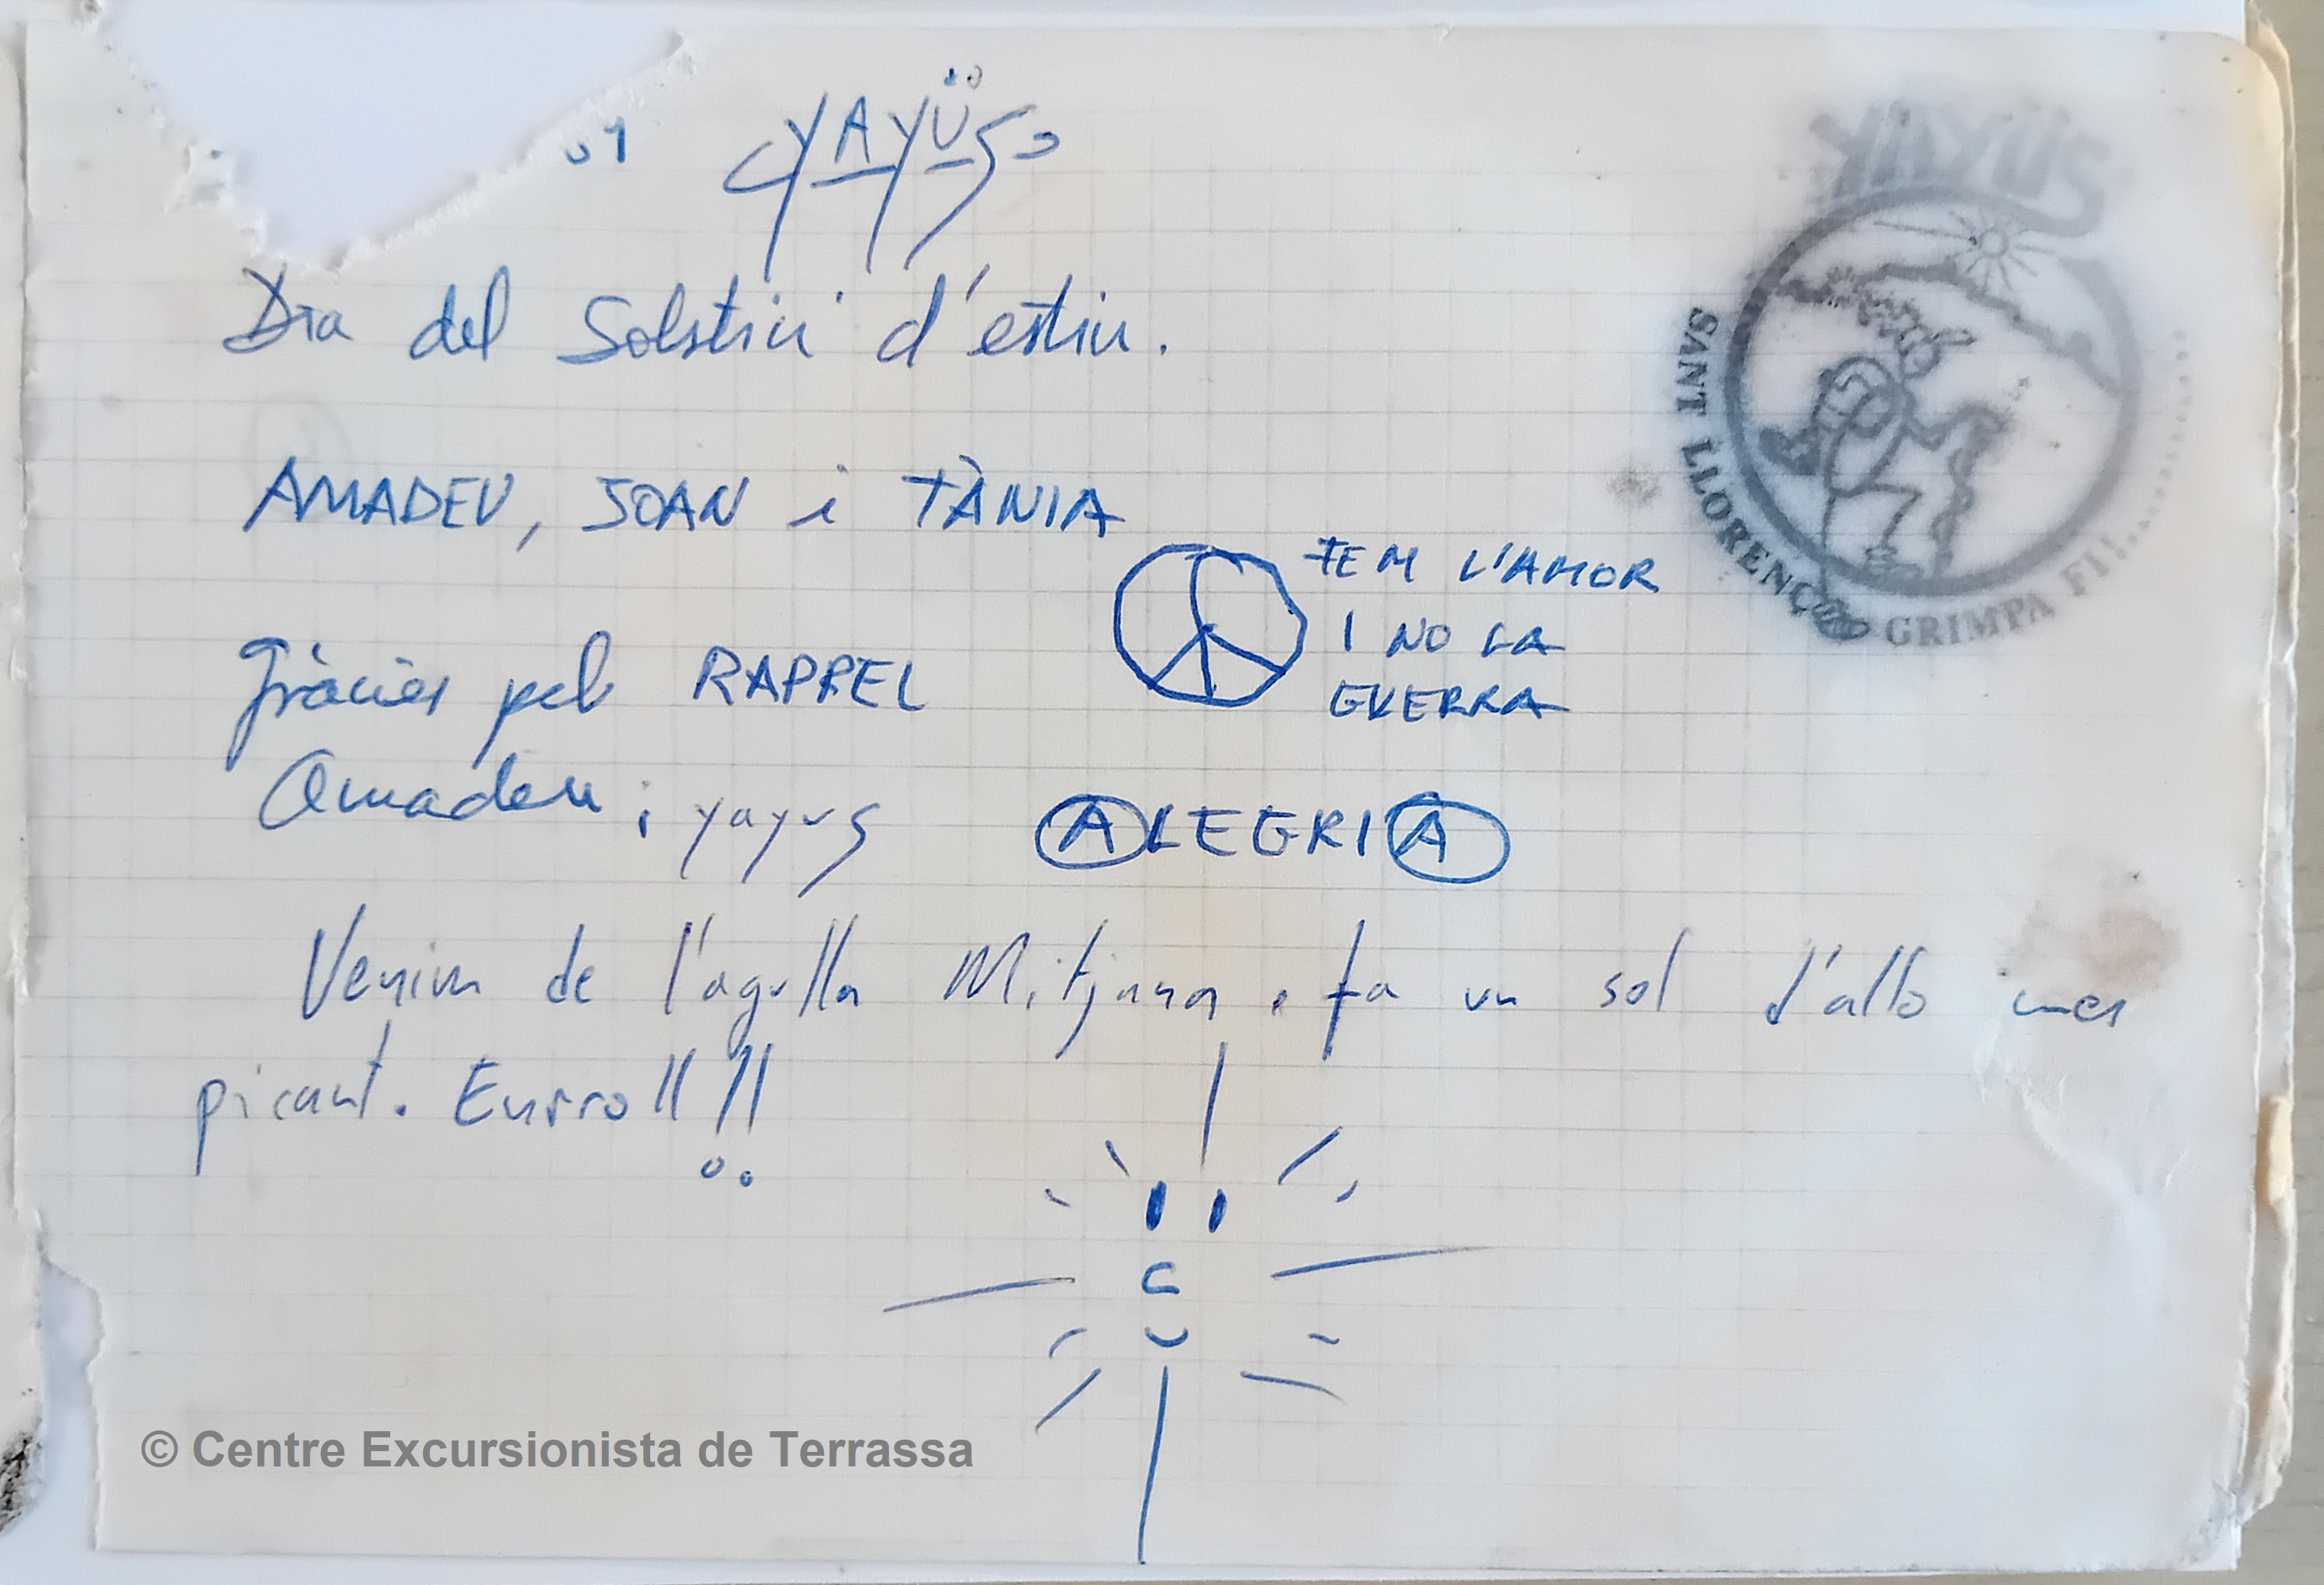 01 YAYÜS
YAYÜS
SANT LLORENÇ GRIMPA FI!........
Dia del Solstici d'estiu.
AMADEU, JOAN i TÀNIA
FEM L'AMOR
I NO LA
GUERRA
Gràcies pel RAPPEL
Amadeu i yayus
ALEGRIA
Venim de l'agulla Mitjana. fa un sol d'allò mes
picant.
© Centre Excursionista de Terrassa